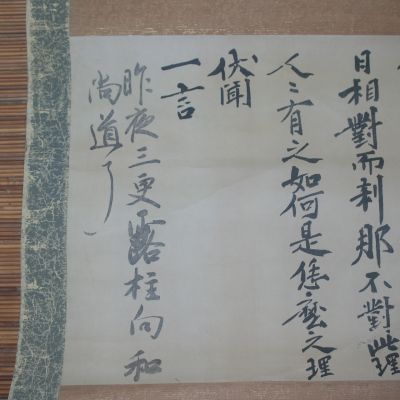 日相對而刹那不對此理
人々有之如何是恁麼之理
伏聞
一言
昨夜三更露柱向和
尚道了